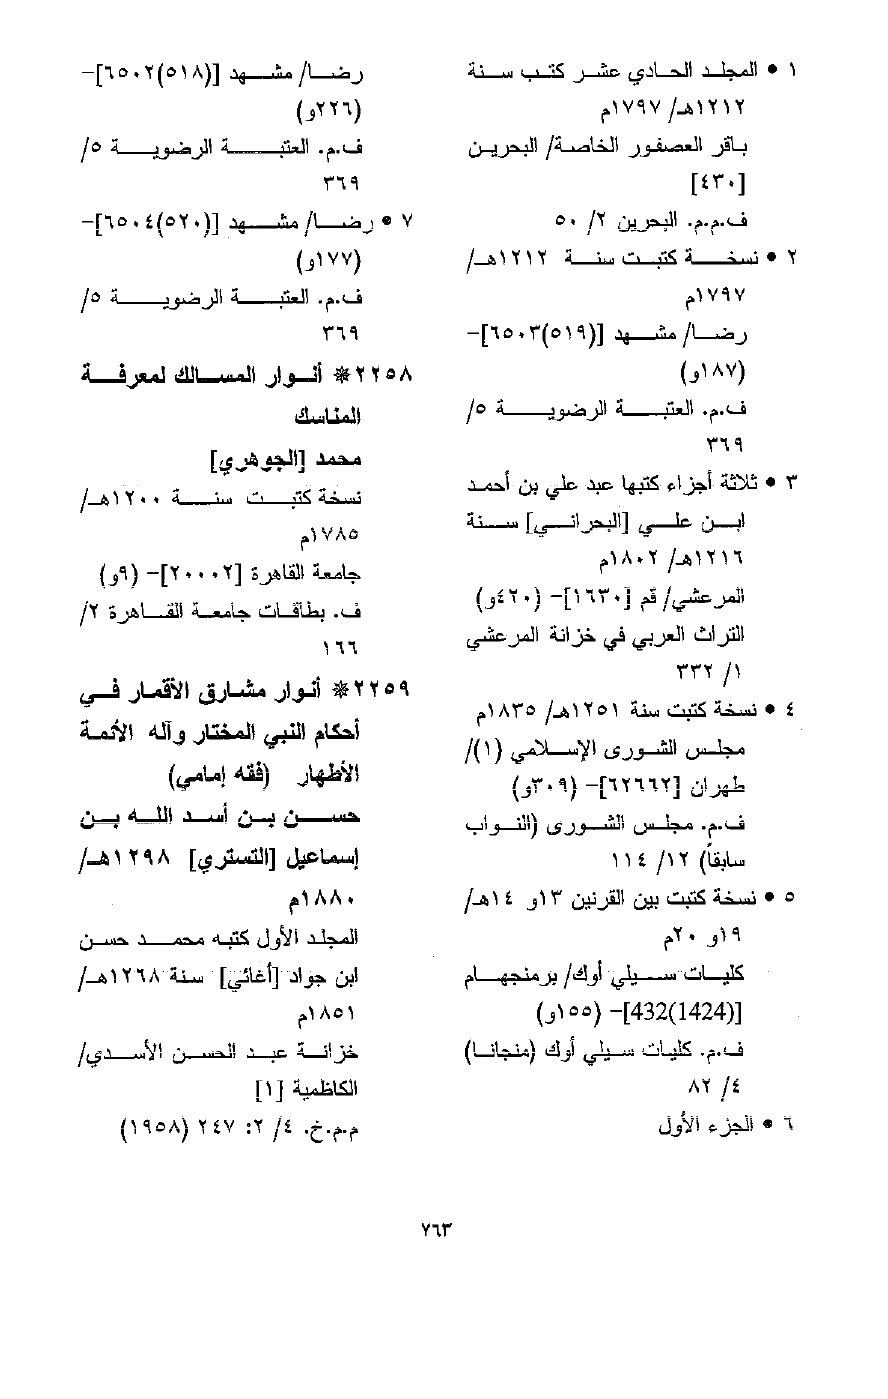 ١ • المجلد الحادي عشر كتب سنة
١٢١٢هـ/ ١٧٩٧م
باقر العصفور الخاصة/ البحرين
[٤٣٠]
ف.م.م. البحرين ٢/ ٥٠
٢ • نسخة كتبت سنة ١٢١٢هـ/
١٧٩٧م
رضا/ مشهد [(٥١٩)٦٥٠٣]-
(١٨٧و)
ف.م. العتبة الرضوية ٥/
٣٦٩
٣ • ثلاثة أجزاء كتبها عبد علي بن أحمد
ابن علي [البحراني] سنة
١٢١٦هـ/ ١٨٠٢م
المرعشي/ قم [١٦٣٠]- (٤٢٠و)
التراث العربي في خزانة المرعشي
١/ ٣٣٢
٤ • نسخة كتبت سنة ١٢٥١هـ/ ١٨٣٥م
مجلس الشورى الإسلامي (١)/
طهران [٦٢٦٦٢]- (٣٠٩و)
ف.م. مجلس الشورى (النواب
سابقاً) ١٢/ ١١٤
٥ • نسخة كتبت بين القرنين ١٣و ١٤هـ/
١٩و ٢٠م
كليات سيلي أوك/ برمنجهام
[432(1424)]- (١٥٥و)
ف.م. كليات سيلي أوك (منجانا)
٤/ ٨٢
٦ • الجزء الأول
رضا/ مشهد [(٥١٨)٦٥٠٢]-
(٢٢٦و)
ف.م. العتبة الرضوية ٥/
٣٦٩
٧ • رضا/ مشهد [(٥٢٠)٦٥٠٤]-
(١٧٧و)
ف.م. العتبة الرضوية ٥/
٣٦٩
٢٢٥٨ * أنوار المسالك لمعرفة
المناسك
محمد [الجوهري]
نسخة كتبت سنة ١٢٠٠هـ/
١٧٨٥م
جامعة القاهرة [٢٠٠٠٢]- (٩و)
ف. بطاقات جامعة القاهرة ٢/
١٦٦
٢٢٥٩ * أنوار مشارق الأقمار في
أحكام النبي المختار وآله الأئمة
الأطهار (فقه إمامي)
حسن بن أسد الله بن
إسماعيل [التستري] ١٢٩٨هـ/
١٨٨٠م
المجلد الأول كتبه محمد حسن
ابن جواد [أغائي] سنة ١٢٦٨هـ/
١٨٥١م
خزانة عبد الحسن الأسدي/
الكاظمية [١]
م.م.خ. ٤/ ٢: ٢٤٧ (١٩٥٨)
٧٦٣